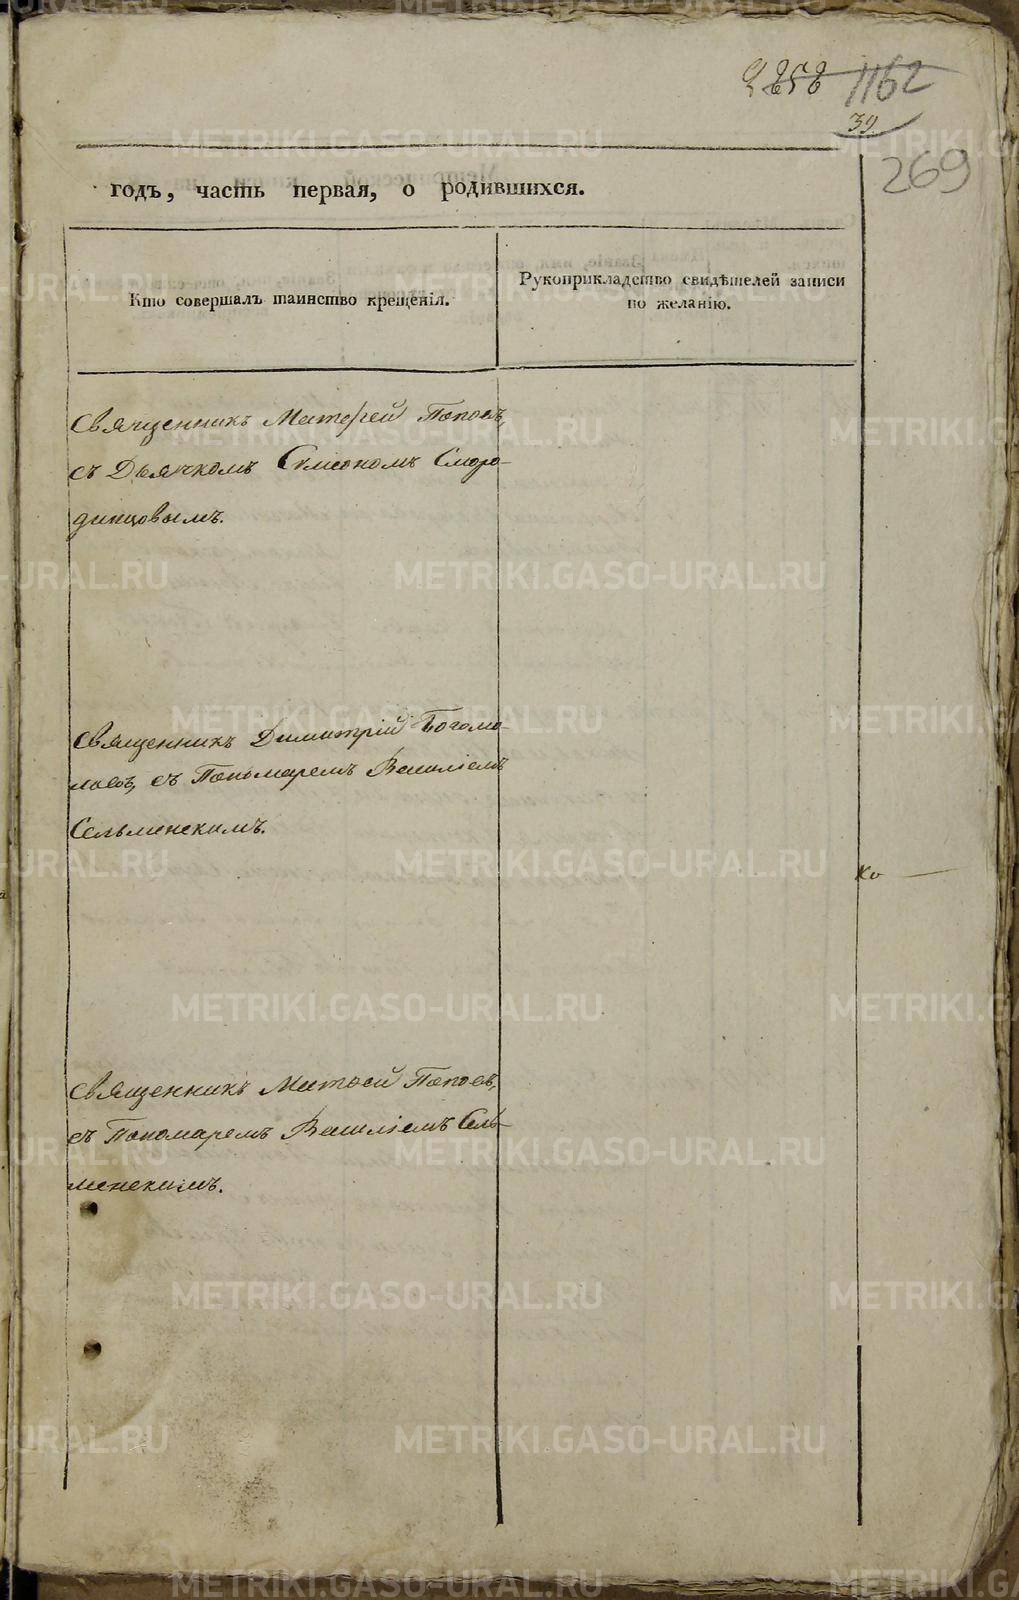 1162
39.
269
годъ, часть первая, о родившихся.
Кто совершалъ таинство крещенія.
Рукоприкладство свидѣтелей записи
по желанію.
Священникъ Матѳей Поповъ,
съ Дьячкомъ Симеономъ Сморо-
динцовымъ.
Священникъ Димитрій Богомо-
ловъ, съ Пономаремъ Василіемъ
Сельменскимъ.
Ко
Священникъ Матѳей Поповъ,
съ Пономаремъ Василіемъ Сель-
менскимъ.
METRIKI.GASO-URAL.RU